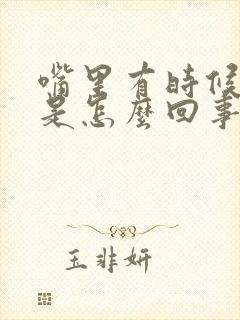 嘴里有时候
是怎麼回事
玉非妍